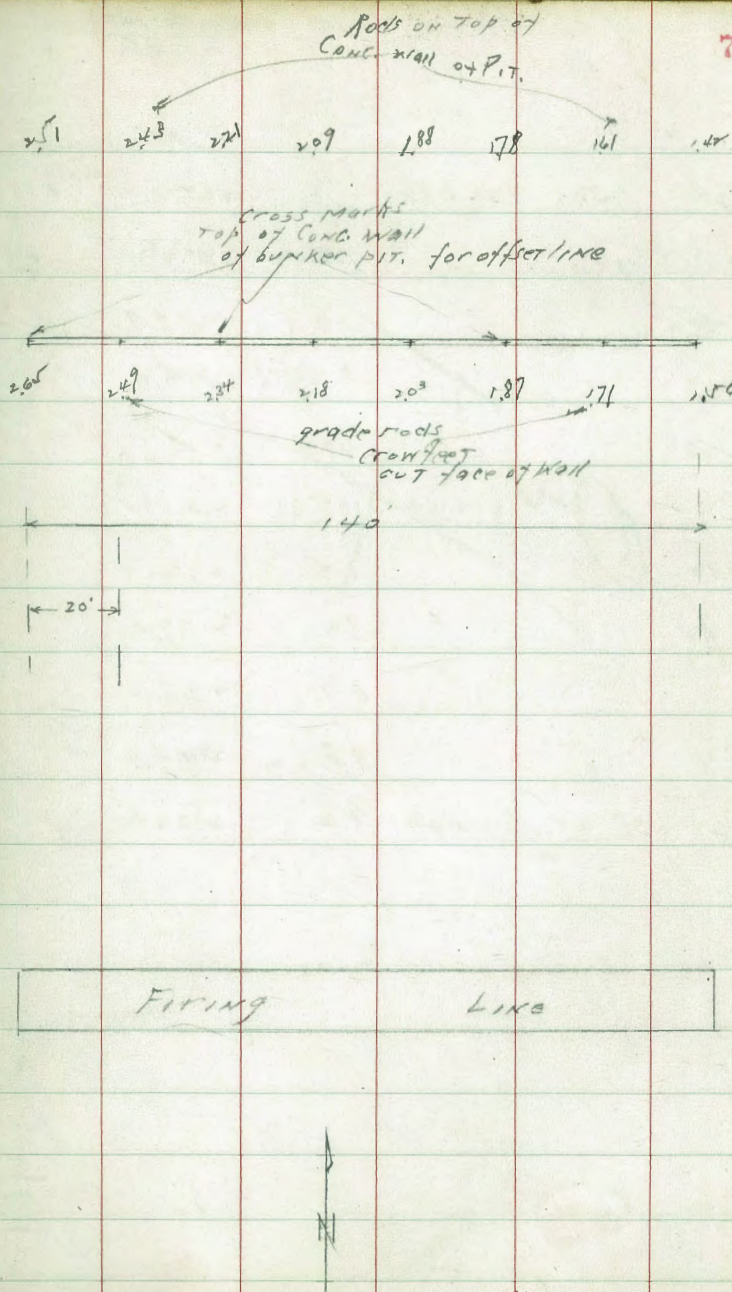 Rods on Top of
Conc. Wall of Pit.
7
2.51 2.43 2.09 1.88 1.78 1.61 1.42
Cross Marks
Top of Conc. Wall
of bunker pit. for offset line
2.65 2.49 2.34 2.18 2.03 1.87 1.71
grade rods
Crowfeet
cut face of Wall
140'
20'
Firing Line
N